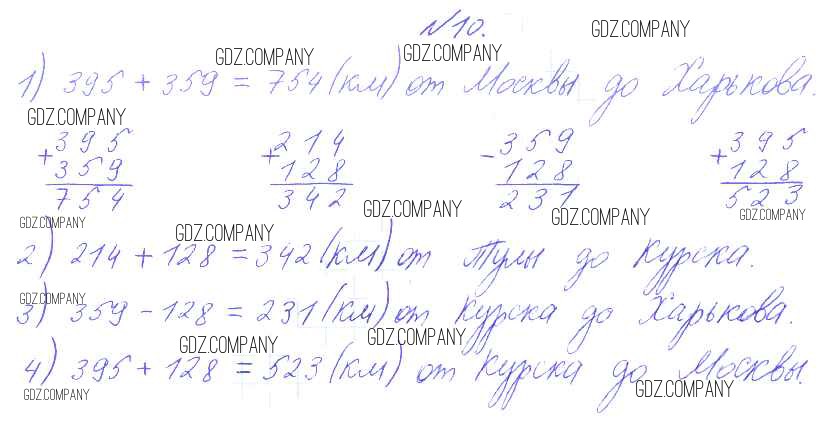 N10.
GDZ.COMPANY
GDZ.COMPANY GDZ.COMPANY
1) 395 + 359 = 754 (км) от Москвы до Харькова.
GDZ.COMPANY
395 214 359 395
+ + - +
359 128 128 128
754 342 231 523
GDZ.COMPANY GDZ.COMPANY GDZ.COMPANY GDZ.COMPANY
GDZ.COMPANY
2) 214 + 128 = 342 (км) от Тулы до Курска.
GDZ.COMPANY
3) 359 - 128 = 231 (км) от Курска до Харькова.
GDZ.COMPANY GDZ.COMPANY
4) 395 + 128 = 523 (км) от Курска до Москвы.
GDZ.COMPANY GDZ.COMPANY